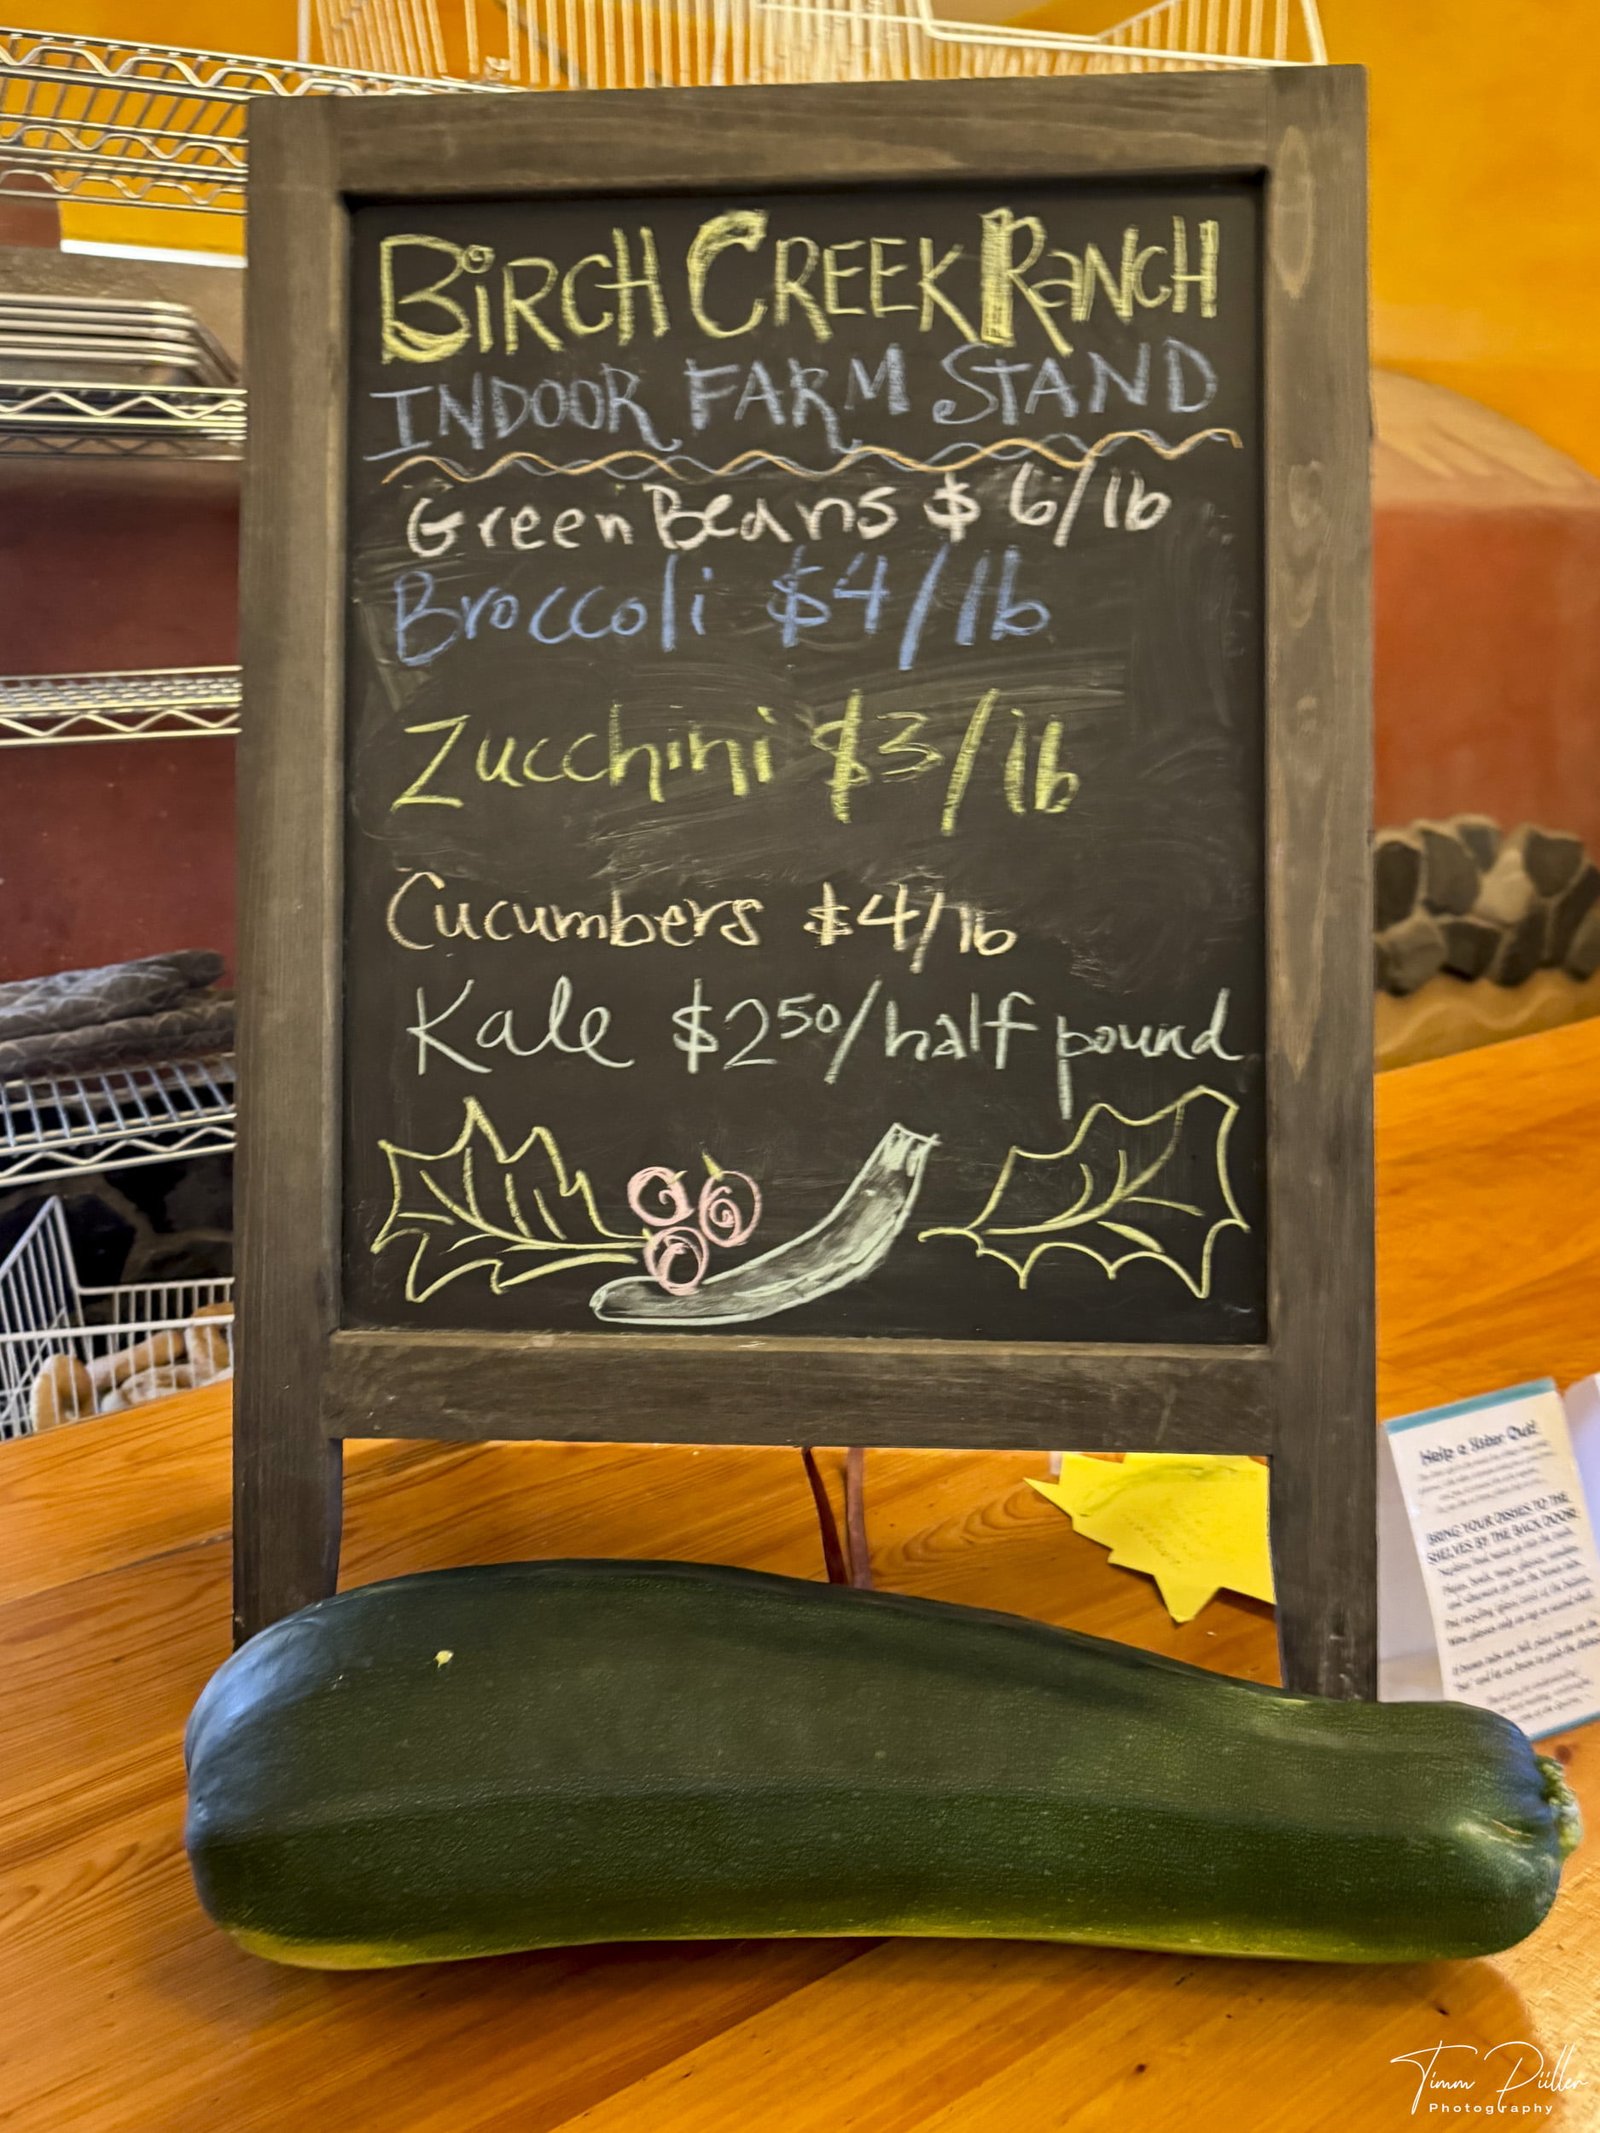 BIRCH CREEK RANCH
INDOOR FARM STAND
Green Beans $6/lb
Broccoli $4/lb
Zucchini $3/lb
Cucumbers $4/lb
Kale $2.50/half pound
Help a Sister Out!
BRING YOUR DISHES TO THE
SHELVES BY THE BACK DOOR!
Timm Püller
Photography